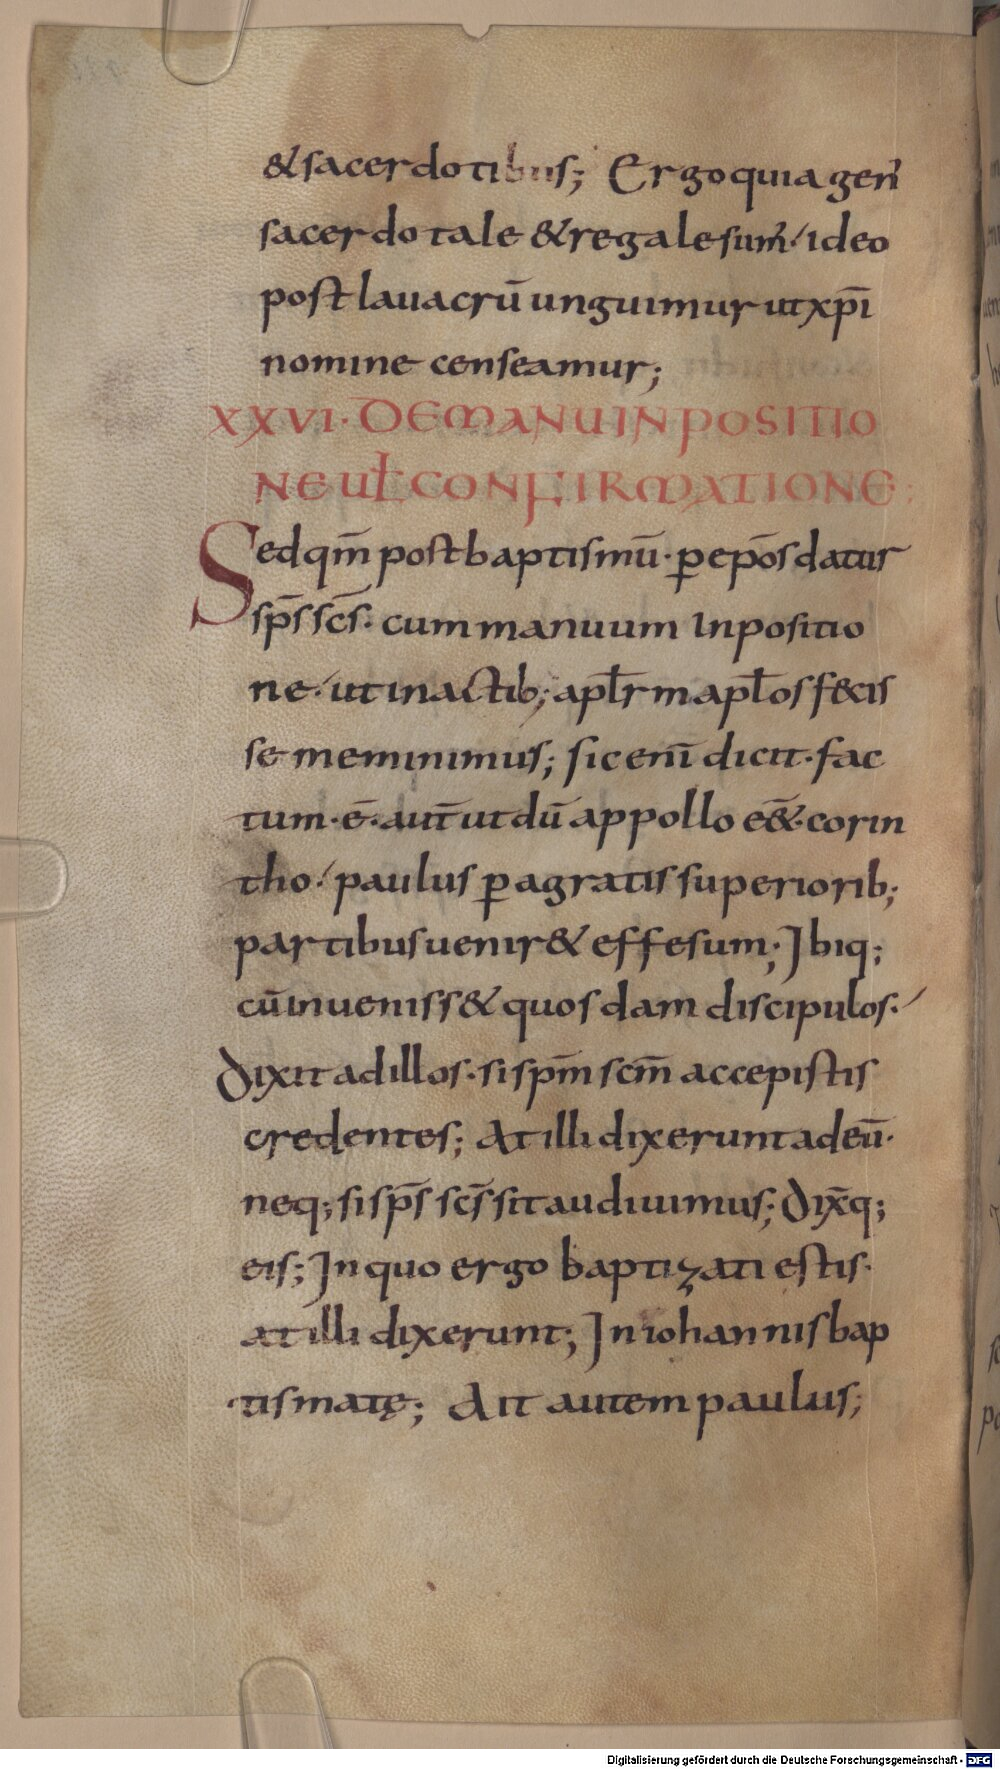 &sacerdotibus; Ergo quia gen̄
sacerdotale & regale sum̄ ideo
post lauacrū unguimur ut xp̄i
nomine censeamur;
XXVI· DE MANU INPOSITIO
NE UƚCONFIRMATIONE:
Sed qm̄ post baptismū· ꝑ ep̄os datur
sp̄s sc̄s· cum manuum Inpositio
ne· ut in actib; apƚr̄m apƚos f&cis
se meminimus; sic enī dicit· fac
tum· ē· aut̄ ut dū appollo e&̄· corin
tho· paulus ꝑagratis superiorib;
partibus uenir& effesum; Ibiq;
cū inueniss& quosdam discipulos·
Dixit ad illos· si sp̄m sc̄m accepistis
credentes; At illi dixerunt ad eū·
neq; si sp̄s sc̄s sit audiuimus; Dix̄q;
eis; In quo ergo baptizati estis·
at illi dixerunt; In iohannis bap
tismatę; Ait autem paulus;
Digitalisierung gefördert durch die Deutsche Forschungsgemeinschaft - DFG